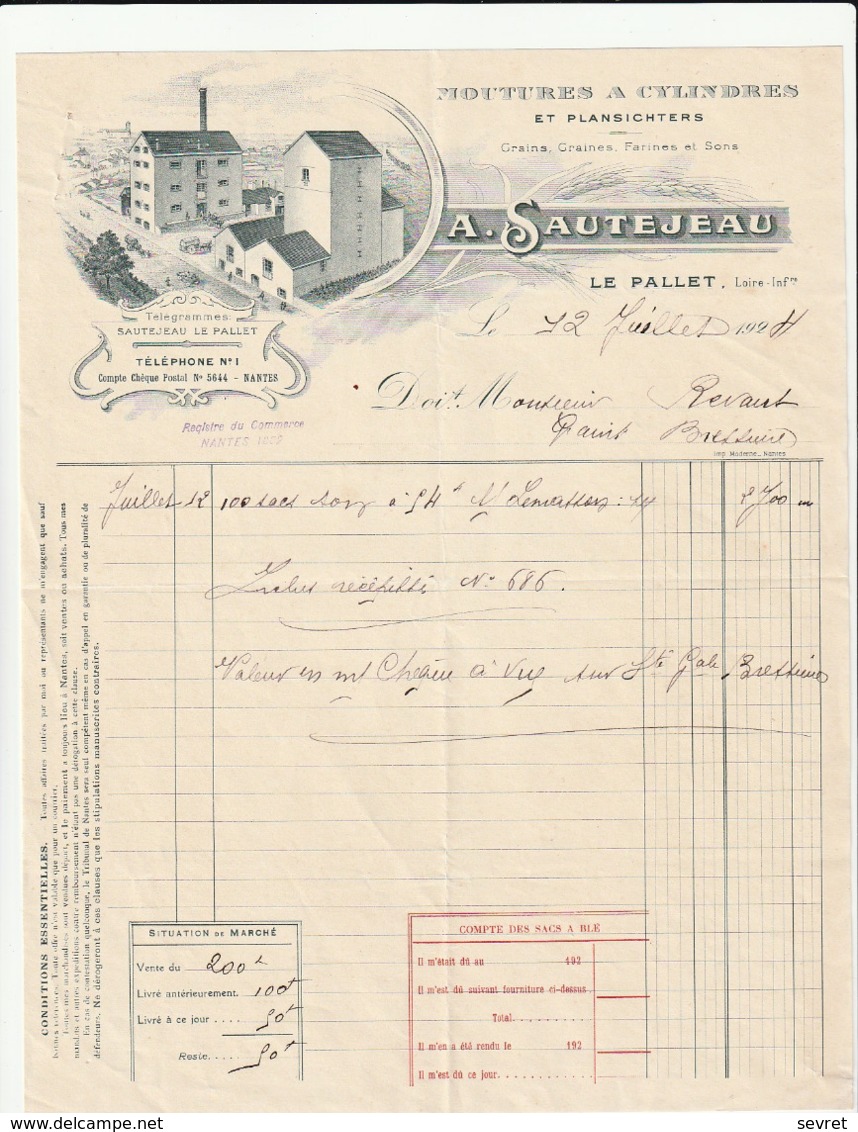 MOUTURES A CYLINDRES
ET PLANSICHTERS
Grains, Graines, Farines et Sons
A. SAUTEJEAU
LE PALLET, Loire-Infre
Télégrammes:
SAUTEJEAU LE PALLET
TÉLÉPHONE No 1
Compte Chèque Postal No 5644 - NANTES
Registre du Commerce
NANTES
Le 12 Juillet 1924
Doit Monsieur Revaut
Bressuire
Imp Moderne_ Nantes
Juillet 12 100 sacs son à 54 2700
récépissé No 686.
Valeur en mt Chèque à vue sur Sté Gale Bressuire
CONDITIONS ESSENTIELLES. Toutes affaires traitées par moi ou représentants ne m'engagent que sauf
bonnes rentrées. Toute offre n'est valable que pour un courrier.
Toutes mes marchandises sont vendues départ, et le paiement a toujours lieu à Nantes, soit ventes ou achats. Tous mes
mandats et autres expéditions contre remboursement n'étant pas une dérogation à cette clause.
En cas de contestation quelconque, le Tribunal de Nantes sera seul compétent même en cas d'appel en garantie ou de pluralité de
défendeurs. Ne dérogeront à ces clauses que les stipulations manuscrites contraires.
SITUATION DE MARCHÉ
Vente du 200
Livré antérieurement. 100
Livré à ce jour .... 50
Reste..... 50
COMPTE DES SACS A BLÉ
Il m'était dû au 192
Il m'est dû suivant fourniture ci-dessus.
Total.
Il m'en a été rendu le 192
Il m'est dû ce jour.
sevret